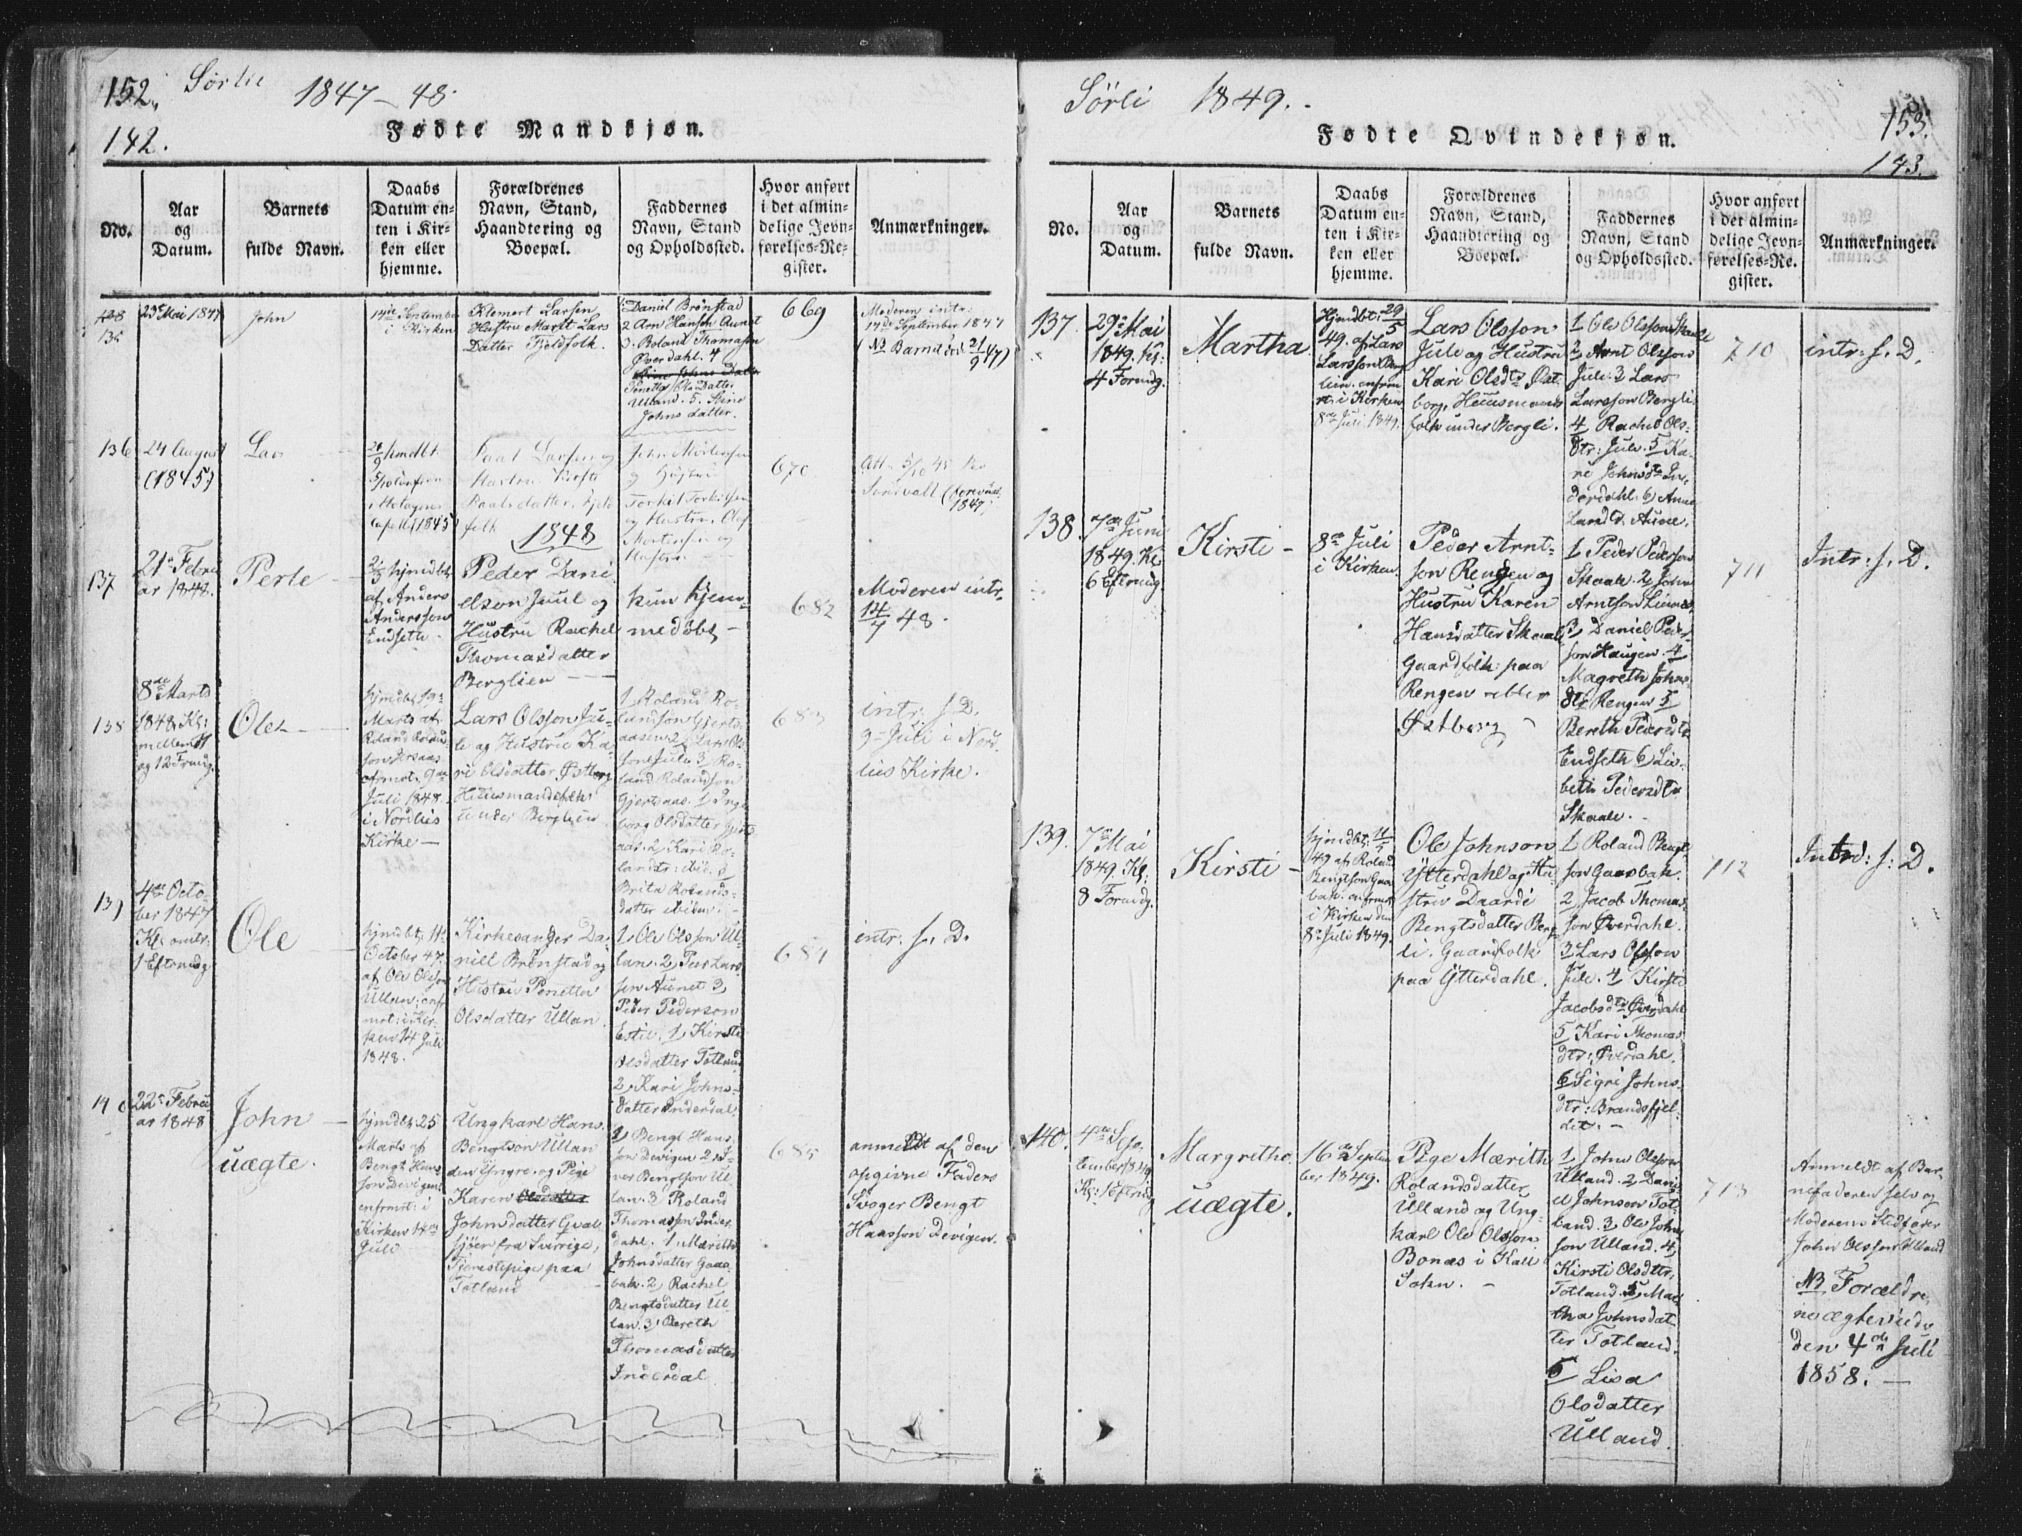 152. Sørlie 1847-48.
142.
Fødte Mandkjøn.
No.
Aar
og
Datum.
Barnets
fulde Navn.
Daabs
Datum en-
ten i Kir-
ken eller
hjemme.
Forældrenes
Navn, Stand,
Haandtering og
Boepæl.
Faddernes
Navn, Stand
og Opholdssted.
Hvor anført
i det almin-
delige Jevn-
førelses-Re-
gister.
Anmærkninger.
135
23 Mai 1847
John
i Kirken
Klemert Larsen
Hustru Marit Lars
Datter Fjeldfolk.
Daniel Brønstad
2 Arn Hansen Aunet
3. Roland Thomasen
Øverdahl. 4
Ulland. 5. Stine
Johns datter.
669
Moderen intr:
14de September 1847
136
24 August
(1845)
Lars
hmdbt
Hustru
1848
John Mortensen
og Hustru
670
137
21de Febru
ar 1848.
Perle
hjmdbt
af Anders
Anderssøn
Endsete
Peder Dani
elson Juul og
Hustru Rachel
Thomasdatter
Berglien
kun hjem-
medøbt
682
Moderen intr.
14/7 48.
138
8de Marts
1848. Kl:
mellem 11
og 12 Formdg.
Ole
hjmdbt 19
Marts af
Juli 1848
i Nordlis
Kirke
Lars Olsson Ju-
le og Hustru Ka-
ri Olsdatter Østborg
Huusmandsfolk
under Berglien
1 Roland Ro-
landsøn Gjerts-
aasen 2 Lars Ols
søn Jule 3 Ro-
land Rolandsøn
Gjertsaas. 1 Inge
borg Olsdatter Gjerts
aas. 2 Kari Ro-
landsdtr: ibid. 3
Brita Rolands-
datter ibidem.
683
intr: s. D.
9 Juli i Nord
lies Kirke.
139
4de Octo-
ber 1847
Kl: omtr:
1 Eftermdg
Ole
hjmdbt 11
October 47
af Ole Olsson
Ullan: enfr
mt: i Kir-
ken 14 Juli
1848.
Kirkesanger Da-
niel Brønstad og
Hustru Penetta
Olsdatter Ullan
1 Ole Olsson Ul-
lan. 2 Peer Lars
søn Aunet 3
Peder Pederson
Estil. 1 Kirsti
Olsdatter Totland
2 Kari Johns-
datter Inderdal
684
intr: s. D.
140
22de Febru
ar 1848
John
uægte.
hjmdbt 25
Marts af
Bengt Hans
søn Devigen
enfrmt: i
Kirken 14de
Juli
Ungkarl Hans
Bengtson Ullan
den Yngre og Pige
Karen
Johnsdatter Gvæl
sjøen fra Sverrige,
Tjenestepige paa
Totland
1 Bengt Hans
søn Devigen 2 I-
ver Bengtson Ul
lan. 3 Roland
Thomassøn Inder
dahl. 1 Mærith
Johnsdatter Gaas
bak. 2 Rachel
Bengtsdatter Ul
lan. 3 Bereth
Thomasdatter
Inderdal
685
anmeldt af den
opgivne Faders
Svoger Bengt
Hansson Devigen.
Sørli 1849.
153.
143.
Fødte Qvindekjøn.
No.
Aar
og
Datum.
Barnets
fulde Navn.
Daabs
Datum en-
ten i Kir-
ken eller
hjemme.
Forældrenes
Navn, Stand,
Haandtering og
Boepæl.
Faddernes
Navn, Stand
og Opholdssted.
Hvor anført
i det almin-
delige Jevn-
førelses-Re-
gister.
Anmærkninger.
137
29de Mai
1849. Kl:
4 Formdg.
Martha
Hjmdbt: 29/5
49. af Lars
Larsson Berg
lien. enfrm
rt: i Kirken
8de Juli 1849.
Lars Olsson
Jule og Hustru
Kari Olsdtr Øst
borg, Huusmands
folk under Bergli.
1 Ole Olsson Skaale
2 Arnt Olsson
Jule. 3 Lars
Larsson Bergli
4 Rachel Ols-
dtr: Jule. 5 Ka-
ri Johnsdtr In-
derdahl. 6 Anne
Larsd. Aune.
710
intr: s. D.
138.
7de Juni
1849. Kl:
6 Eftermdg
Kirsti
8de Juli
i Kirken.
Peder Arnt-
søn Rengen og
Hustru Karen
Hansdatter Skaal
Gaardfolk paa
Rengen
Østborg
1 Peder Pederson
Skaale. 2 John
Arntsøn Liernes
3 Daniel Peder-
søn Haugen. 4
Magreth Johns
dtr Rengen 5
Bereth Pedersdtr
Endseth 6 Lis-
beth Pedersdtr
Skaale.
711
Intr: s. D.
139.
7de Mai
1849. Kl:
8 Formdg.
Kirsti
hjmdbt: 11/5
49 af Roland
Bengtsøn Gaas
bak. enfrmt
i Kirken den
8de Juli 1849.
Ole Johnson
Ytterdahl og Hu-
stru Daardi
Bengtsdatter Berg
li. Gaardfolk
paa Ytterdahl.
1 Roland Bengt
søn Gaasbak.
2 Jacob Thomas-
søn Øverdahl.
3 Lars Olsson
Jule. 4 Kirsti
Jacobsdtr Øverdahl
5 Kari Thomas
dtr: Øverdahl.
6 Sigri Johns-
dtr: Brandsfjel-
det.
712
Intrd: s: D.
140.
4de Sep-
tember 1849
Kl: 1 Eftermdg
Margrethe
uægte.
16de Septem
ber 1849.
Pige Mærith
Rolandsdatter
Ulland og Ung-
karl Ole Olsson
Bonæs i Kall
Sohn.
1 John Olsson
Ulland. 2 Dani
el Johnson Tot-
land. 3 Ole John
søn Ulland. 4
Kirsti Olsdtr:
Totland. 5 Mar
tha Johnsdat-
ter Totland.
6 Lisa
Olsdatter
Ulland.
713
Anmeldt af Bar-
nefaderen selv og
Moderens Stedfader
John Olsson Ulland
NB Foræld re
ne ægteviede
den 4de Juli
1858.